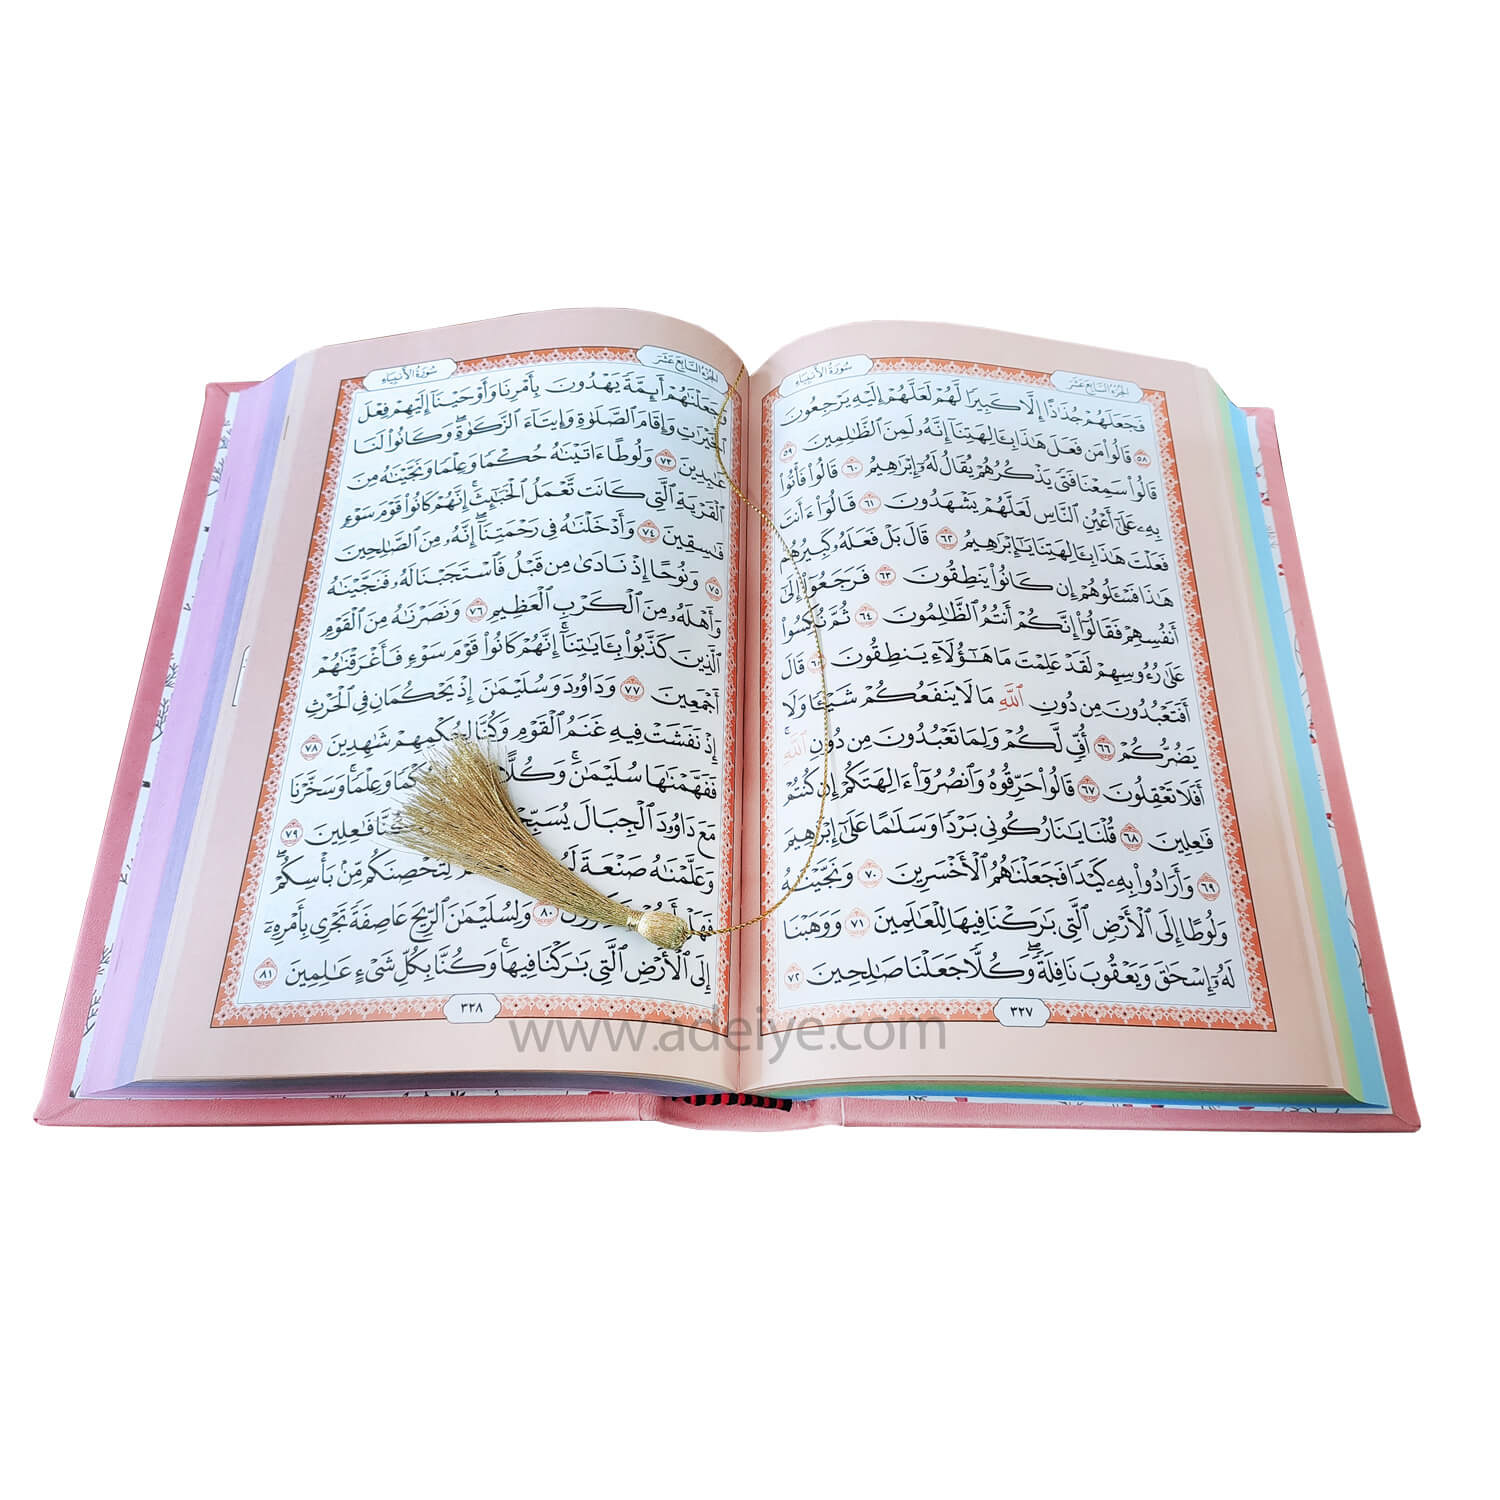 الجزء السابع عشر
سورة الأنبياء
فَجَعَلَهُمْ جُذَٰذًا إِلَّا كَبِيرًا لَّهُمْ لَعَلَّهُمْ إِلَيْهِ يَرْجِعُونَ
٥٨ قَالُوا۟ مَن فَعَلَ هَٰذَا بِـَٔالِهَتِنَآ إِنَّهُۥ لَمِنَ ٱلظَّٰلِمِينَ ٥٩
قَالُوا۟ سَمِعْنَا فَتًى يَذْكُرُهُمْ يُقَالُ لَهُۥٓ إِبْرَٰهِيمُ ٦٠ قَالُوا۟ فَأْتُوا۟
بِهِۦ عَلَىٰٓ أَعْيُنِ ٱلنَّاسِ لَعَلَّهُمْ يَشْهَدُونَ ٦١ قَالُوٓا۟ ءَأَنتَ
فَعَلْتَ هَٰذَا بِـَٔالِهَتِنَا يَٰٓإِبْرَٰهِيمُ ٦٢ قَالَ بَلْ فَعَلَهُۥ كَبِيرُهُمْ
هَٰذَا فَسْـَٔلُوهُمْ إِن كَانُوا۟ يَنطِقُونَ ٦٣ فَرَجَعُوٓا۟ إِلَىٰٓ
أَنفُسِهِمْ فَقَالُوٓا۟ إِنَّكُمْ أَنتُمُ ٱلظَّٰلِمُونَ ٦٤ ثُمَّ نُكِسُوا۟
عَلَىٰ رُءُوسِهِمْ لَقَدْ عَلِمْتَ مَا هَٰٓؤُلَآءِ يَنطِقُونَ ٦٥ قَالَ
أَفَتَعْبُدُونَ مِن دُونِ ٱللَّهِ مَا لَا يَنفَعُكُمْ شَيْـًٔا وَلَا
يَضُرُّكُمْ ٦٦ أُفٍّ لَّكُمْ وَلِمَا تَعْبُدُونَ مِن دُونِ ٱللَّهِ ۖ
أَفَلَا تَعْقِلُونَ ٦٧ قَالُوا۟ حَرِّقُوهُ وَٱنصُرُوٓا۟ ءَالِهَتَكُمْ إِن كُنتُمْ
فَٰعِلِينَ ٦٨ قُلْنَا يَٰنَارُ كُونِى بَرْدًا وَسَلَٰمًا عَلَىٰٓ إِبْرَٰهِيمَ
٦٩ وَأَرَادُوا۟ بِهِۦ كَيْدًا فَجَعَلْنَٰهُمُ ٱلْأَخْسَرِينَ ٧٠ وَنَجَّيْنَٰهُ
وَلُوطًا إِلَى ٱلْأَرْضِ ٱلَّتِى بَٰرَكْنَا فِيهَا لِلْعَٰلَمِينَ ٧١ وَوَهَبْنَا
لَهُۥٓ إِسْحَٰقَ وَيَعْقُوبَ نَافِلَةً ۖ وَكُلًّا جَعَلْنَا صَٰلِحِينَ ٧٢
٣٢٧
الجزء السابع عشر
سورة الأنبياء
وَجَعَلْنَٰهُمْ أَئِمَّةً يَهْدُونَ بِأَمْرِنَا وَأَوْحَيْنَآ إِلَيْهِمْ فِعْلَ
ٱلْخَيْرَٰتِ وَإِقَامَ ٱلصَّلَوٰةِ وَإِيتَآءَ ٱلزَّكَوٰةِ ۖ وَكَانُوا۟ لَنَا
عَٰبِدِينَ ٧٣ وَلُوطًا ءَاتَيْنَٰهُ حُكْمًا وَعِلْمًا وَنَجَّيْنَٰهُ مِنَ
ٱلْقَرْيَةِ ٱلَّتِى كَانَت تَّعْمَلُ ٱلْخَبَٰٓئِثَ ۗ إِنَّهُمْ كَانُوا۟ قَوْمَ سَوْءٍ
فَٰسِقِينَ ٧٤ وَأَدْخَلْنَٰهُ فِى رَحْمَتِنَآ ۖ إِنَّهُۥ مِنَ ٱلصَّٰلِحِينَ
٧٥ وَنُوحًا إِذْ نَادَىٰ مِن قَبْلُ فَٱسْتَجَبْنَا لَهُۥ فَنَجَّيْنَٰهُ
وَأَهْلَهُۥ مِنَ ٱلْكَرْبِ ٱلْعَظِيمِ ٧٦ وَنَصَرْنَٰهُ مِنَ ٱلْقَوْمِ
ٱلَّذِينَ كَذَّبُوا۟ بِـَٔايَٰتِنَآ ۚ إِنَّهُمْ كَانُوا۟ قَوْمَ سَوْءٍ فَأَغْرَقْنَٰهُمْ
أَجْمَعِينَ ٧٧ وَدَاوُۥدَ وَسُلَيْمَٰنَ إِذْ يَحْكُمَانِ فِى ٱلْحَرْثِ
إِذْ نَفَشَتْ فِيهِ غَنَمُ ٱلْقَوْمِ وَكُنَّا لِحُكْمِهِمْ شَٰهِدِينَ ٧٨
فَفَهَّمْنَٰهَا سُلَيْمَٰنَ ۚ وَكُلًّا حُكْمًا وَعِلْمًا ۚ وَسَخَّرْنَا
مَعَ دَاوُۥدَ ٱلْجِبَالَ يُسَبِّحْنَ وَكُنَّا فَٰعِلِينَ ٧٩
وَعَلَّمْنَٰهُ صَنْعَةَ لِتُحْصِنَكُم مِّنۢ بَأْسِكُمْ ۖ
فَهَلْ ٨٠ وَلِسُلَيْمَٰنَ ٱلرِّيحَ عَاصِفَةً تَجْرِى بِأَمْرِهِۦٓ
إِلَى ٱلْأَرْضِ ٱلَّتِى بَٰرَكْنَا فِيهَا ۚ وَكُنَّا بِكُلِّ شَىْءٍ عَٰلِمِينَ ٨١
٣٢٨
www.adeiye.com